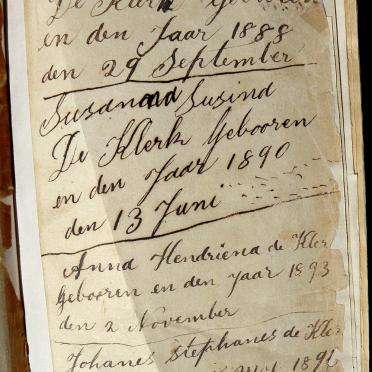 De Klerk Gebooren
en den Jaar 1888
den 29 September
Susanna Susind
De Klerk Gebooren
en den Jaar 1890
den 13 Juni
Anna Hendriena de Kler
Gebooren en den Jaar 1893
den 2 November
Johanes Stephanes de Kler